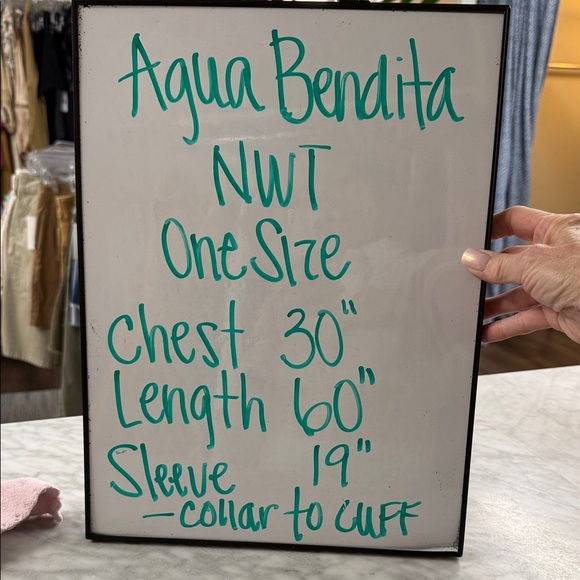 Agua Bendita
NWT
One Size
Chest 30"
Length 60"
Sleeve 19"
- collar to cuff